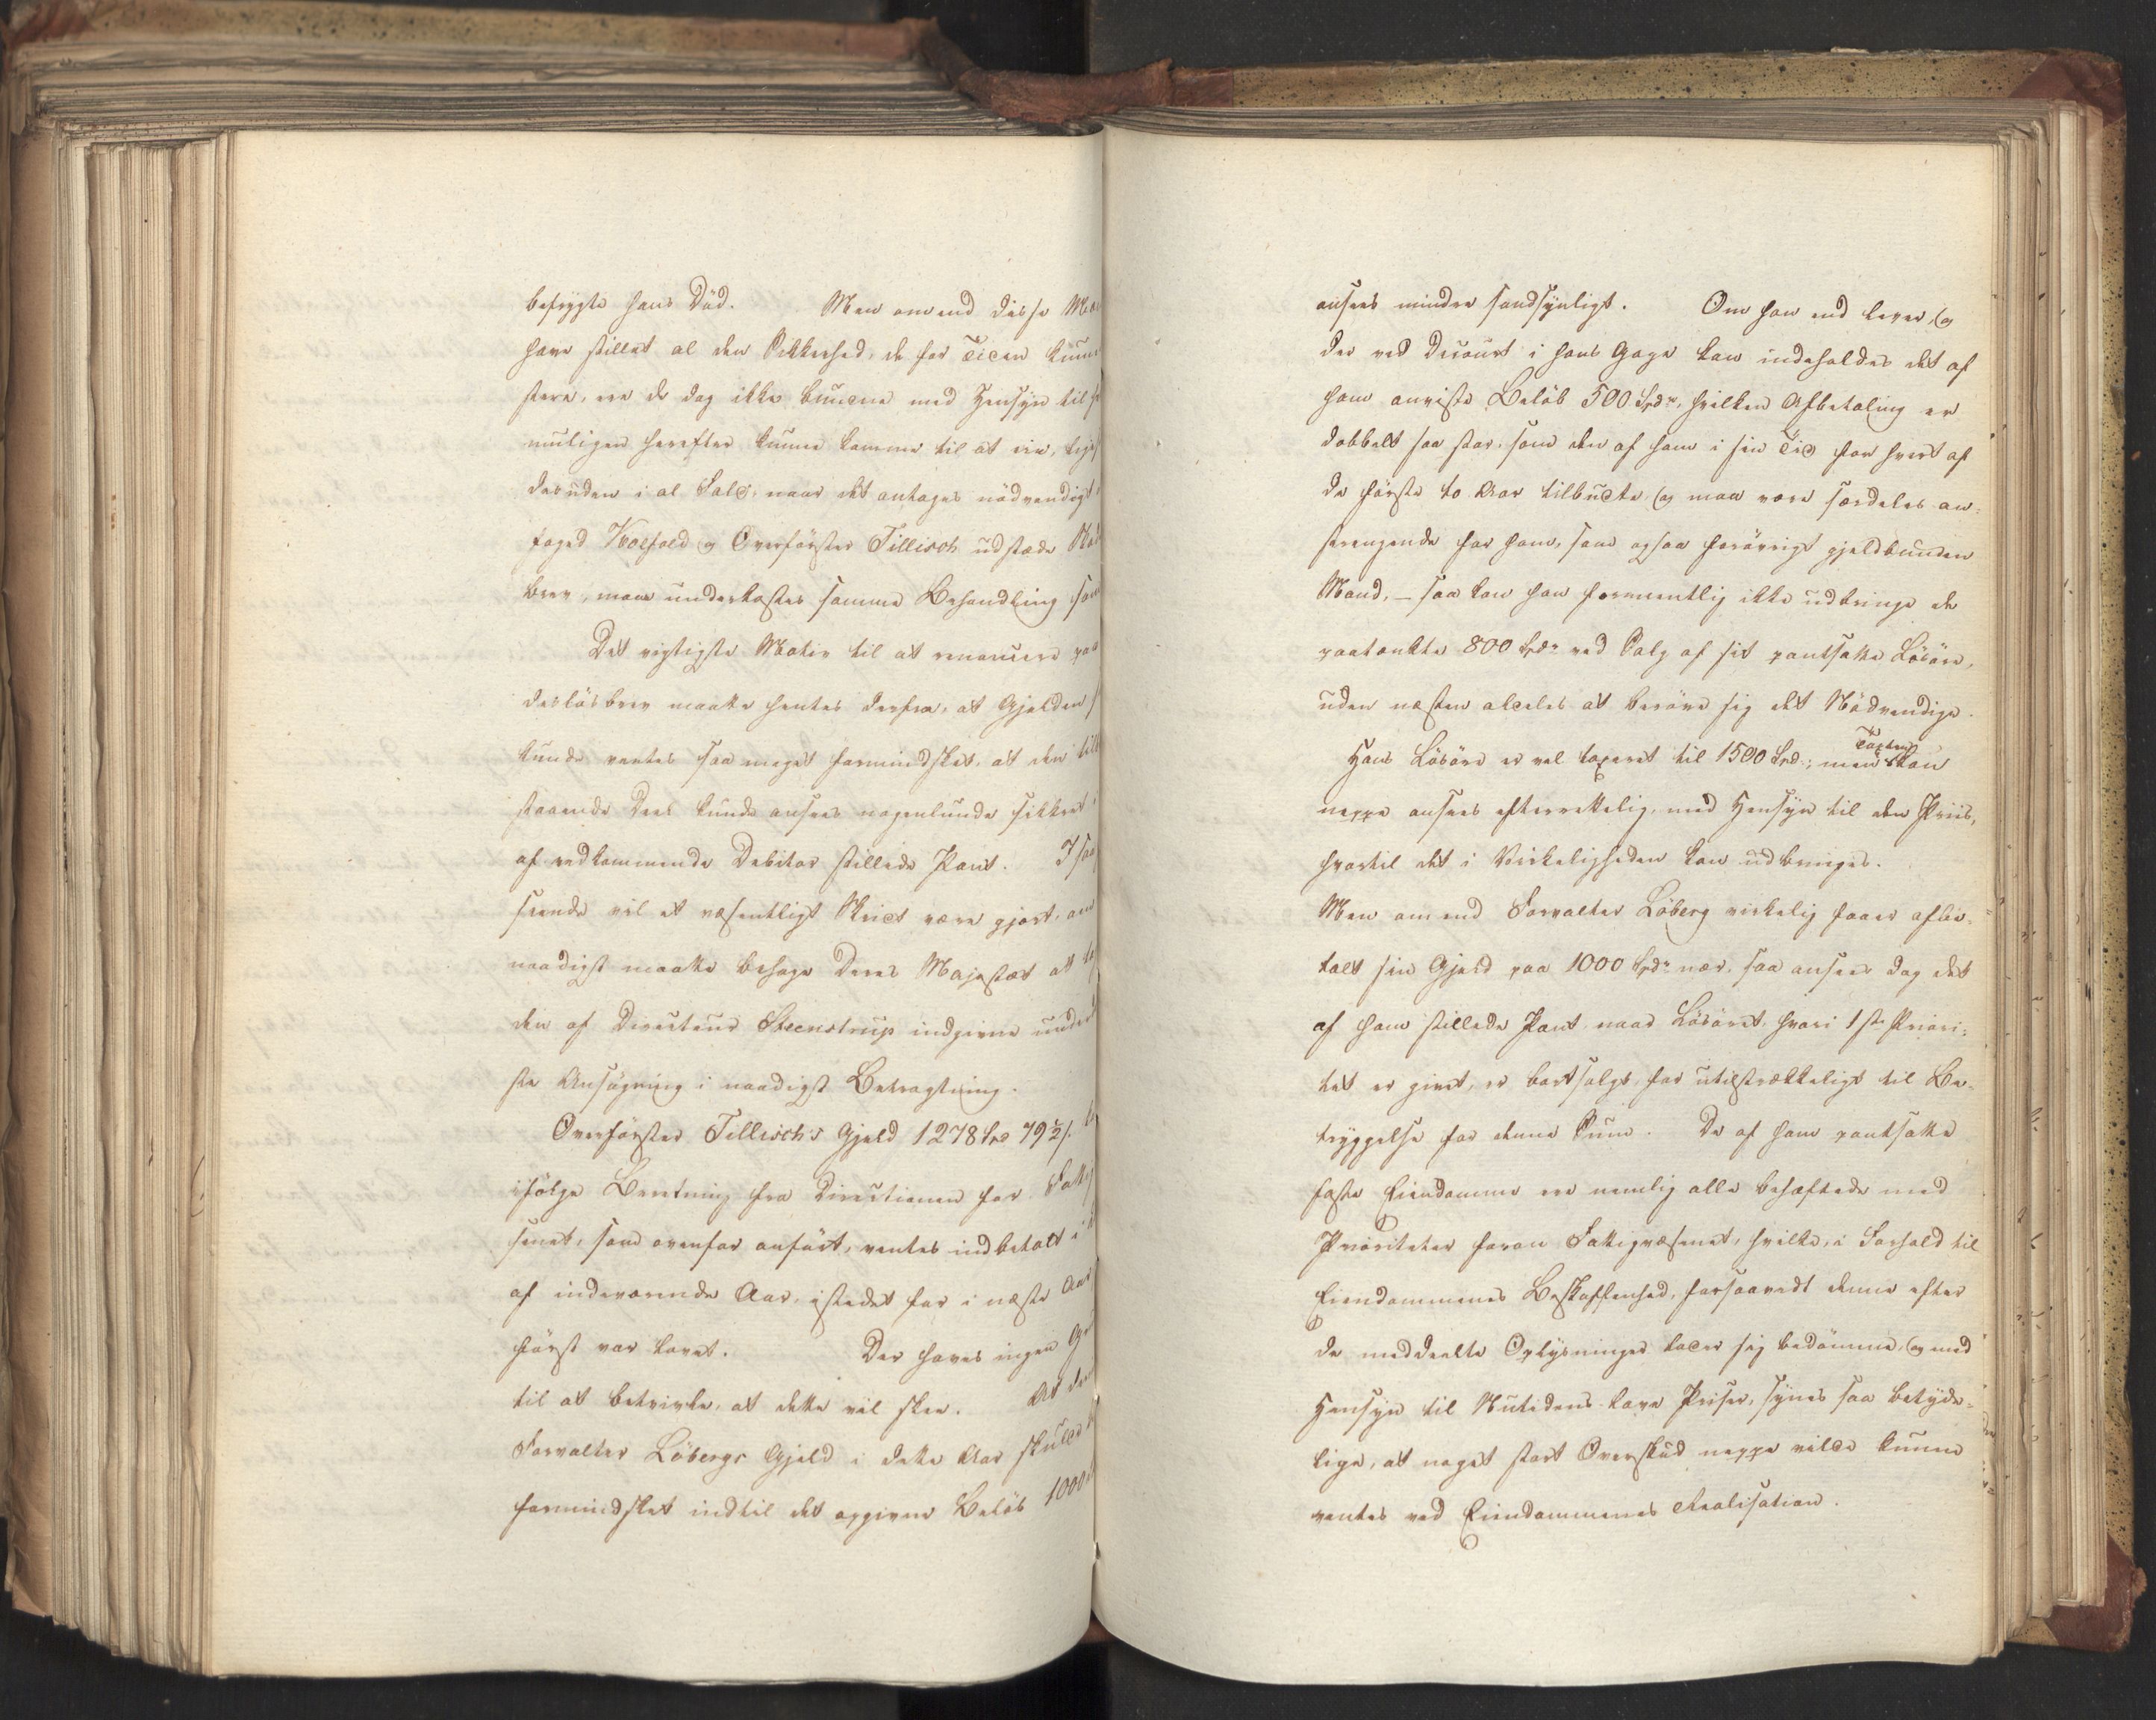 befrygte hans Död. Men om end disse
have stillet al den Sikkerhed, de for Tiden kunne
stere, ere de dog ikke bundne med Hensyn til
muligen herefter kunne komme til at eie,
desuden i al Fald, naar det antages nödvendigt,
foged Kolfald og Overförster Tillisch udstæde
brev, maae underkastes samme Behandling som
Det vigtigste Motiv til at renoncere paa
deslösbrev maatte hentes derfra, at Gjelden
kunde ventes saa meget formindsket, at den
staaende Deel kunde ansees nogenlunde sikkret
af vedkommende Debitor stillede Pant. I saa
seende vil et væsentligt Skridt være gjort, om
naadigst maatte behage Deres Majestæt at
den af Directeur Steenstrup indgivne
ste Ansögning i naadigst Betragtning.
Overförster Tillisch's Gjeld 1278 Spd 79½ s.
ifölge Beretning fra Directionen for
senet, som ovenfor anfört, ventes indbetalt i
af indeværende Aar, istedet for i næste Aar
först var lovet. Der haves ingen
til at betvivle, at dette vil skee. At
Forvalter Löbergs Gjeld i dette Aar skulde
formindsket indtil det opgivne Belöb 1000
ansees mindre sandsynligt. Om han end lever, og
der ved Decourt i hans Gage kan indeholdes det af
ham anviste Belöb 500 Spdr, hvilken Afbetaling er
dobbelt saa stor, som den af ham i sin Tid for hvert af
de förste to Aar tilbudte, og maa være særdeles an-
strengende for ham, som ogsaa forövrigt gjeldbunden
Mand, – saa kan han formeentlig ikke udbringe de
paatænkte 800 Spdr ved Salg af sit pantsatte Lösöre,
uden næsten aldeles at beröve sig det Nödvendige.
Hans Lösöre er vel taxeret til 1500 Spd.; men Taxten kan
neppe ansees efterrettelig, med Hensyn til den Priis,
hvortil det i Virkeligheden kan udbringes.
Men om end Forvalter Löberg virkelig faaer afbe-
talt sin Gjeld paa 1000 Spdr nær, saa ansees dog det
af ham stillede Pant, naar Lösöret, hvori 1ste Priori-
tet er givet, er bortsolgt, for utilstrækkeligt til Be-
tryggelse for denne Sum. De af ham pantsatte
faste Eiendomme ere nemlig alle behæftede med
Prioriteter foran Fattigvæsenet, hvilke, i Forhold til
Eiendommenes Beskaffenhed, forsaavidt denne efter
de meddeelte Oplysninger lader sig bedömme, og med
Hensyn til Nutidens lave Priser, synes saa betyde-
lige, at noget stort Overskud neppe vilde kunne
ventes ved Eiendommenes Realisation.